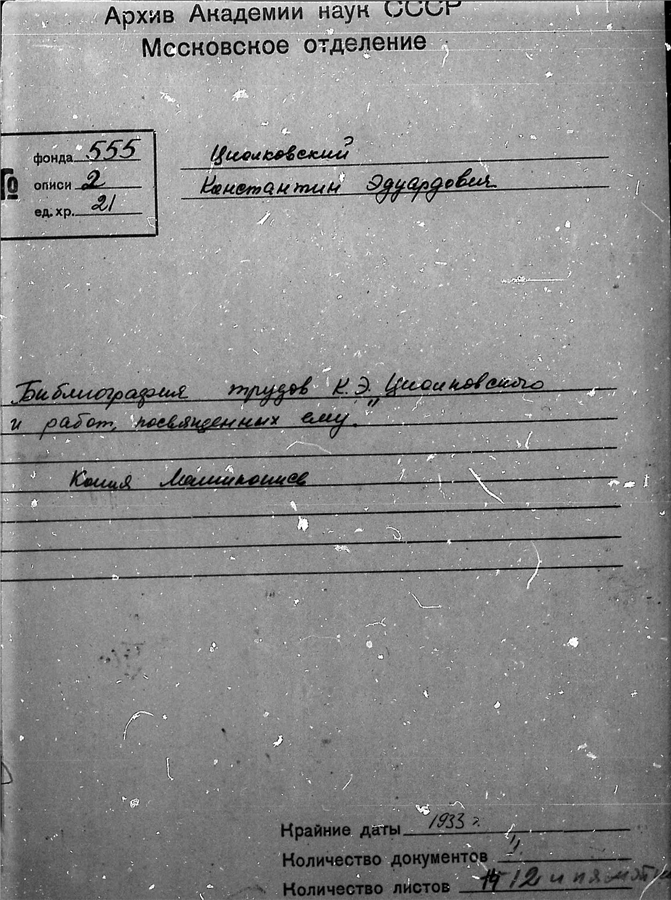 Архив Академии наук СССР
Московское отделение
фонда 555
описи 2
ед. хр. 21
Циолковский
Константин Эдуардович
Библиография трудов К.Э. Циолковского
и работ, посвященных ему.
Копия Машинопись
Крайние даты 1933 г.
Количество документов
Количество листов 12 и